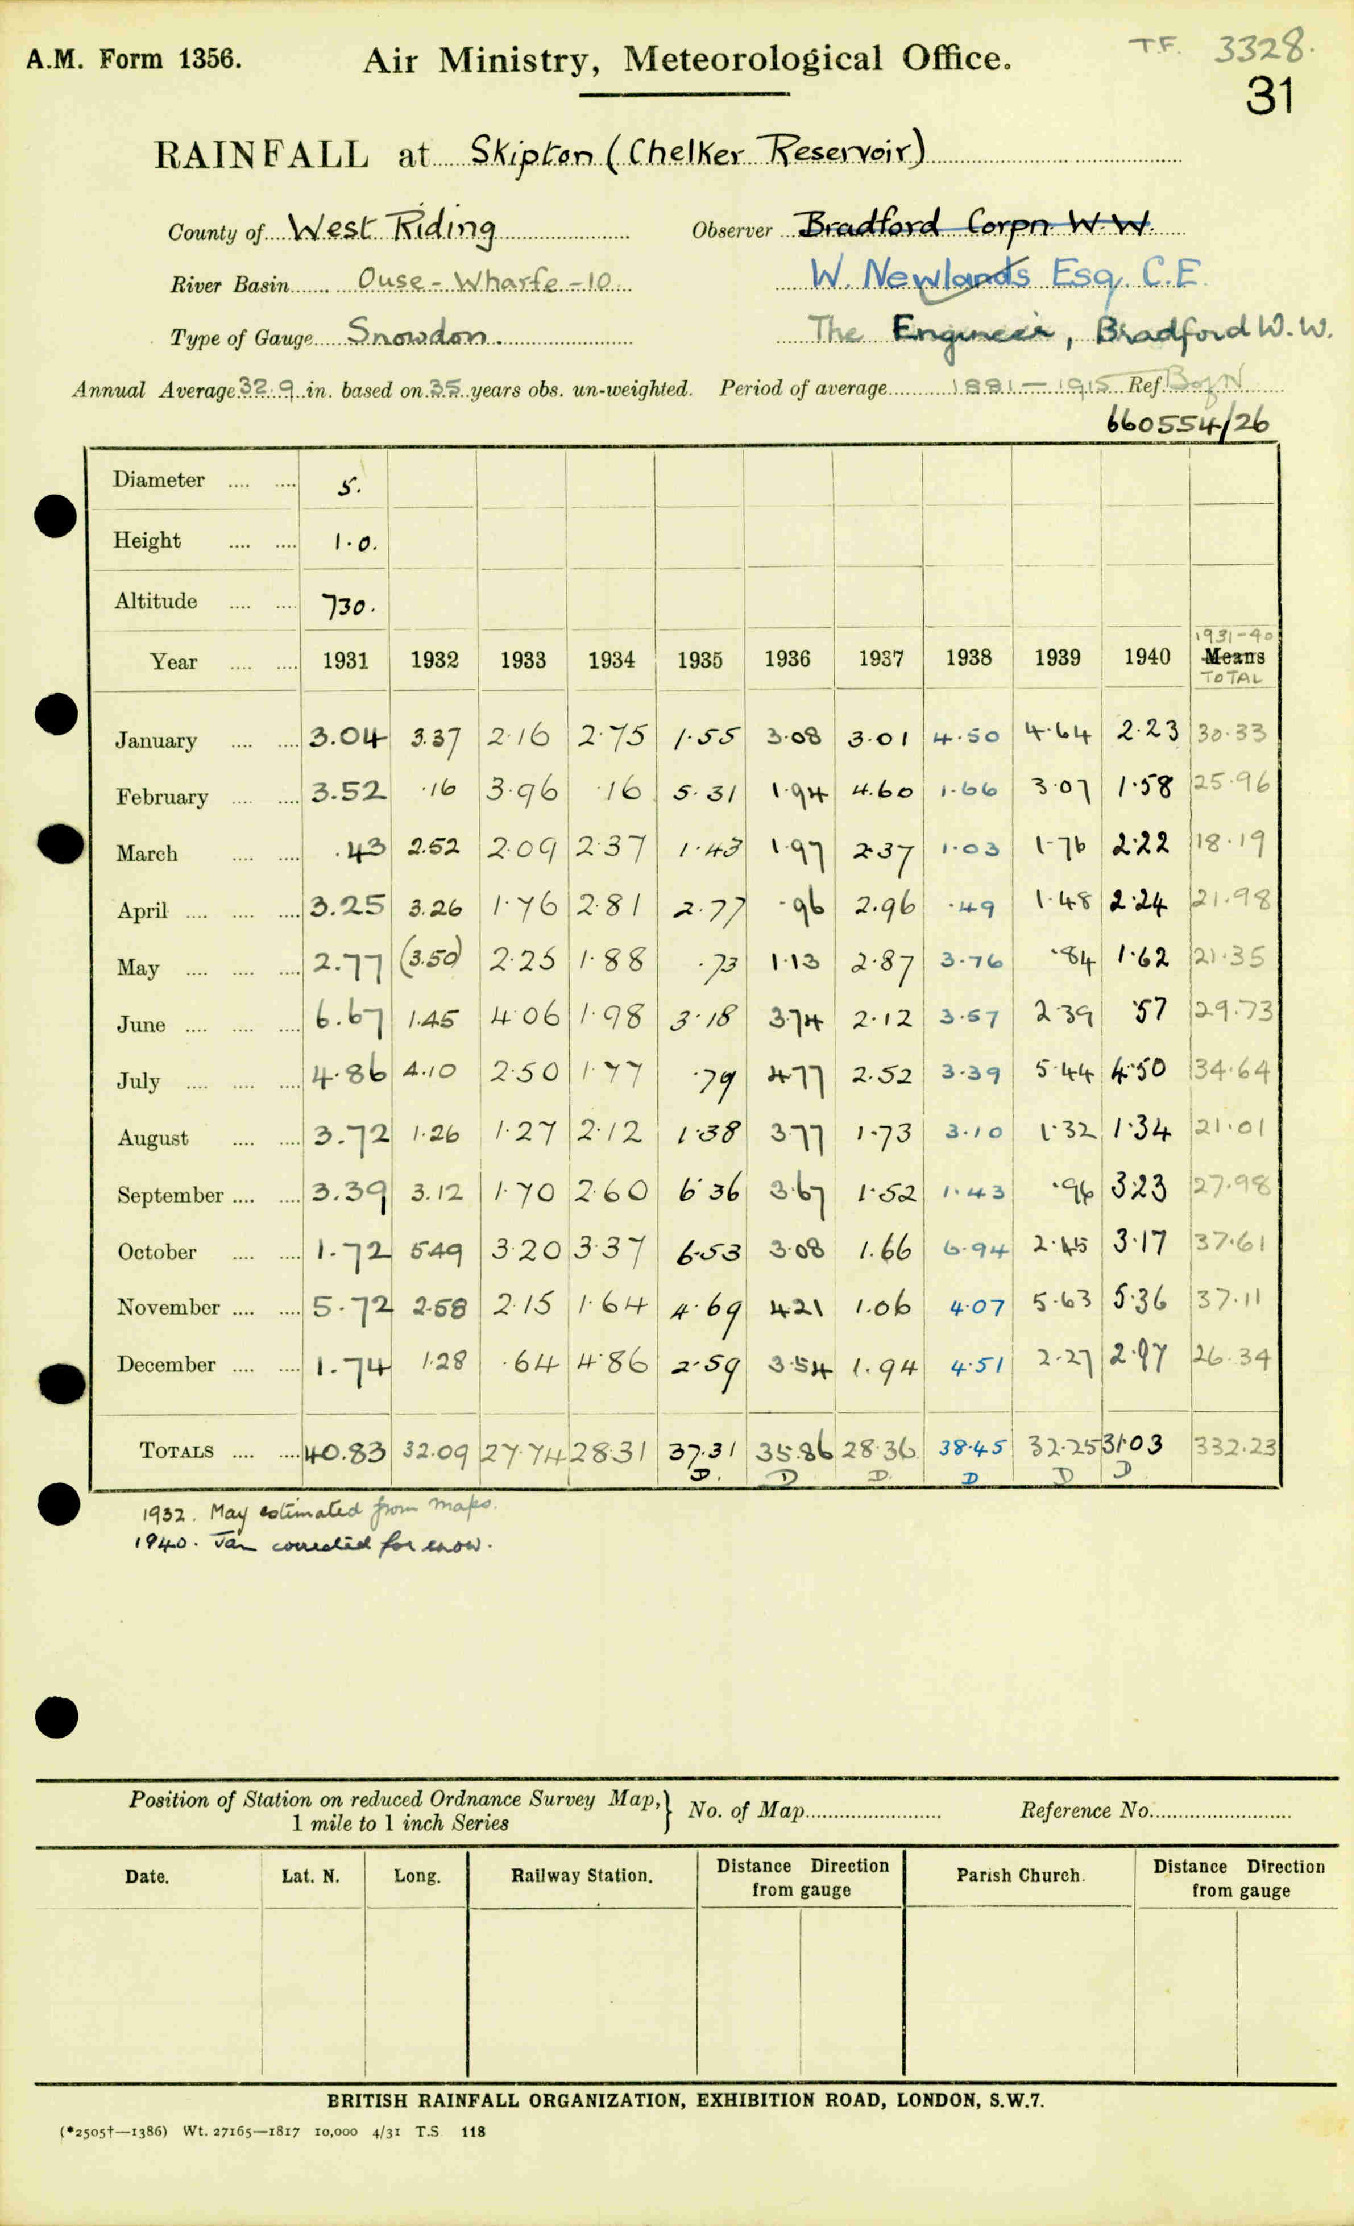 A.M. Form 1356. Air Ministry, Meteorological Office. T.F. 3328.
31
RAINFALL at Skipton (Chelker Reservoir)
County of West Riding Observer Bradford Corpn W.W.
River Basin Ouse - Wharfe - 10. W. Newlands Esq. C.E.
Type of Gauge Snowdon. The Engineer, Bradford W.W.
Annual Average 32.9 in. based on 35 years obs. un-weighted. Period of average 1881 - 1915 Ref. B of N
660554/26
Diameter 5.
Height 1.0.
Altitude 730.
1931-40
Year 1931 1932 1933 1934 1935 1936 1937 1938 1939 1940 Means
TOTAL
January 3.04 3.37 2.16 2.75 1.55 3.08 3.01 4.50 4.64 2.23 30.33
February 3.52 .16 3.96 .16 5.31 1.94 4.60 1.66 3.07 1.58 25.96
March .43 2.52 2.09 2.37 1.43 1.97 2.37 1.03 1.76 2.22 18.19
April 3.25 3.26 1.76 2.81 2.77 .96 2.96 .49 1.48 2.24 21.98
May 2.77 (3.50) 2.25 1.88 .73 1.13 2.87 3.76 .84 1.62 21.35
June 6.67 1.45 4.06 1.98 3.18 3.74 2.12 3.57 2.39 .57 29.73
July 4.86 4.10 2.50 1.77 .79 4.77 2.52 3.39 5.44 4.50 34.64
August 3.72 1.26 1.27 2.12 1.38 3.77 1.73 3.10 1.32 1.34 21.01
September 3.39 3.12 1.70 2.60 6.36 3.67 1.52 1.43 .96 3.23 27.98
October 1.72 5.49 3.20 3.37 6.53 3.08 1.66 6.94 2.45 3.17 37.61
November 5.72 2.58 2.15 1.64 4.69 4.21 1.06 4.07 5.63 5.36 37.11
December 1.74 1.28 .64 4.86 2.59 3.54 1.94 4.51 2.27 2.97 26.34
TOTALS 40.83 32.09 27.74 28.31 37.31 35.86 28.36 38.45 32.25 31.03 332.23
D. D D. D D D
1932. May estimated from maps.
1940. Jan corrected for snow.
Position of Station on reduced Ordnance Survey Map,} No. of Map Reference No.
1 mile to 1 inch Series
Date. Lat. N. Long. Railway Station. Distance Direction from gauge Parish Church. Distance Direction from gauge
BRITISH RAINFALL ORGANIZATION, EXHIBITION ROAD, LONDON, S.W.7.
(*2505†—1386) Wt. 27165—1817 10,000 4/31 T.S. 118